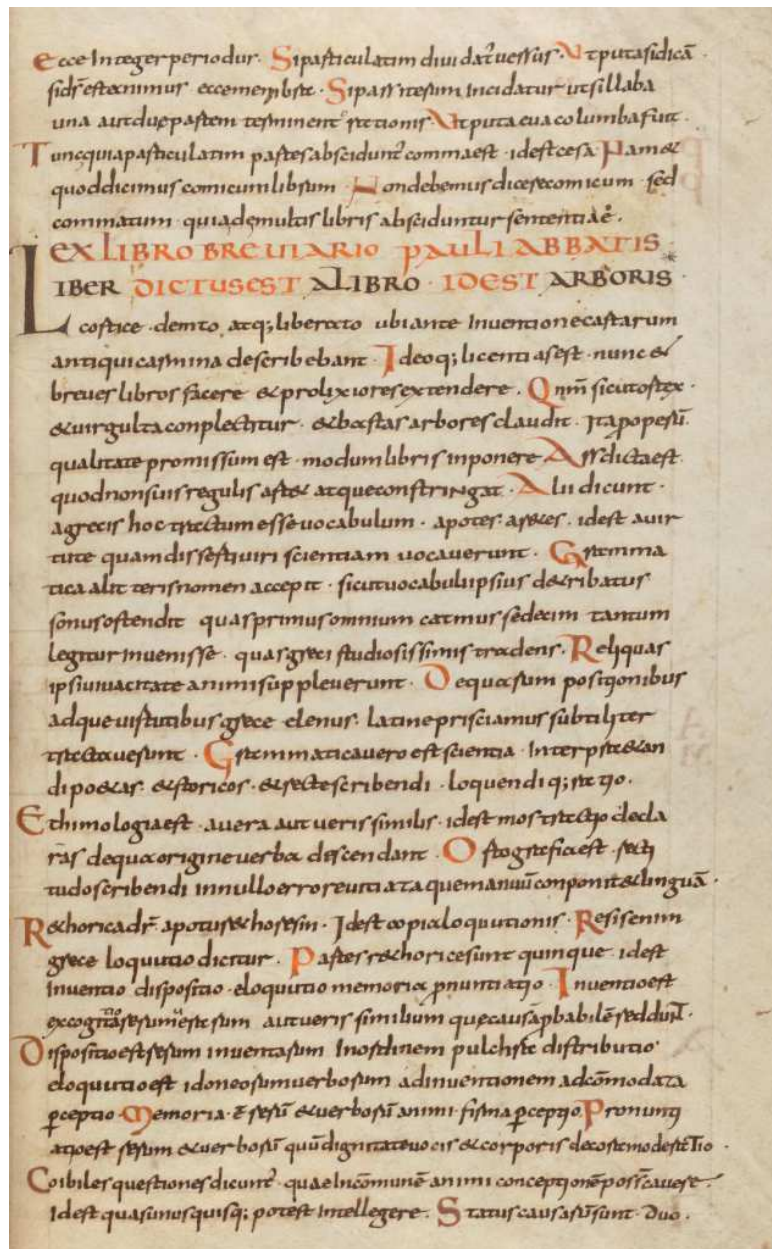 Ecce Integer periodus. Si particulatim dividat᷑ versus. Ut puta si dicā
sidr̄ est animus ecce membrū. Si pars rerum Incidatur ut sillaba
una aut due partem terminent᷑ rationis Ut puta eua columba fuit.
Tunc quia particulatim partes absciduntᷣ comma est. idest cesa Nam &
quod dicimus comicum librum. Non debemus dicere comicum sed
commatum. quia de multis libris absciduntur sententiae.
EX LIBRO BREUIARIO PAULI ABBATIS
LIBER DICTUS EST A LIBRO. IDEST ARBORIS
cortice. demto atq; liberato ubi ante Inventione cartarum
antiqui carmina describebant. Ideoq; licentia est. nunc &
breves libros facere & prolixiores extendere. Qnm̄ sicut ortex
& virgulta conplectitur. & bastas arbores claudit. Ita p̱ operū
qualitate promissum est. modum libris inponere. Ars dicta est.
quod nonsuis regulis arte& atque constringat. Alii dicunt.
a grecis hoc tractum esse vocabulum. apotes. are&es. idest a vir
tute quam disserti viri scientiam vocaverunt. Gramma
tica a litteris nomen accepit. sicut vocabuli ipsius deribatus
sonus ostendit quas primus omnium catmus sedecim tantum
legitur invenisse. quas greci studiosissimis tradens. Reliquas
ipsi vivacitate animi suppleverunt. De quarum positionibus
adque virtutibus grece elenus. latine priscianus subtiliter
tractaverunt. Grammatica vero est scientia. Interpr&an
di po&as. & storicos. & recte scribendi. loquendiq; ratio.
Ethimologia est. a vera aut verissimilis. idest mostratio decla
ras de qua origine verba discendant. Ortografia est. recti
tudo scribendi in nullo errore vitiata que manum conponit & linguā.
R&horica dr̄. apotus r&horesin. Idest copia loquutionis. Resis enim
grece loquutio dicitur. Partes r&horice sunt quinque. idest
Inventio dispositio. eloquutio memoria p̱nuntiatio. Inventio est
excogitatio rerum verarum aut verissimilium que causā p̱babilē reddunt.
Dispositio est rerum inventarum In ordinem pulchre distributio.
eloquutio est idoneorum verborum ad inventionem adcōmodata
p̱ceptio. Memoria. ē rerū & verborū animi. firma p̱ceptio. Pronunti
atio est rerum & verborū quū dignitate vocis & corporis decora moderatio.
Coibiles questiones dicunt᷑. quae In cōmunē animi conceptionē poss̄ cavere.
Idest quas unusquisq; potest Intellegere. Status causarū sunt. duo.